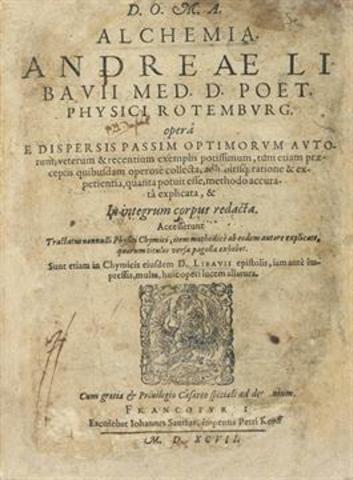 D. O. M. A.
ALCHEMIA.
ANDREAE LI
BAVII MED. D. POET.
PHYSICI ROTEMBVRG.
operâ
E DISPERSIS PASSIM OPTIMORVM AVTO-
rum, veterum & recentium exemplis potissimum, tum etiam præ-
ceptis quibusdam operosè collecta, ratione & ex-
perientia, quanta potuit esse, methodo accura-
tâ explicata, &
In integrum corpus redacta.
Accesserunt
Tractatus nonnulli Physici Chymici, item methodicè ab eodem autore explicati,
quorum titulos versa pagella exhibet.
Sunt etiam in Chymicis eiusdem D. LIBAVII epistolis, iam antè im-
pressis, multa, huic operi lucem allatura.
Cum gratia & Privilegio Cæsareo speciali ad de nium.
FRANCOFVRTI
Excudebat Iohannes Saurius, impensis Petri Kopff
M. D. XCVII.